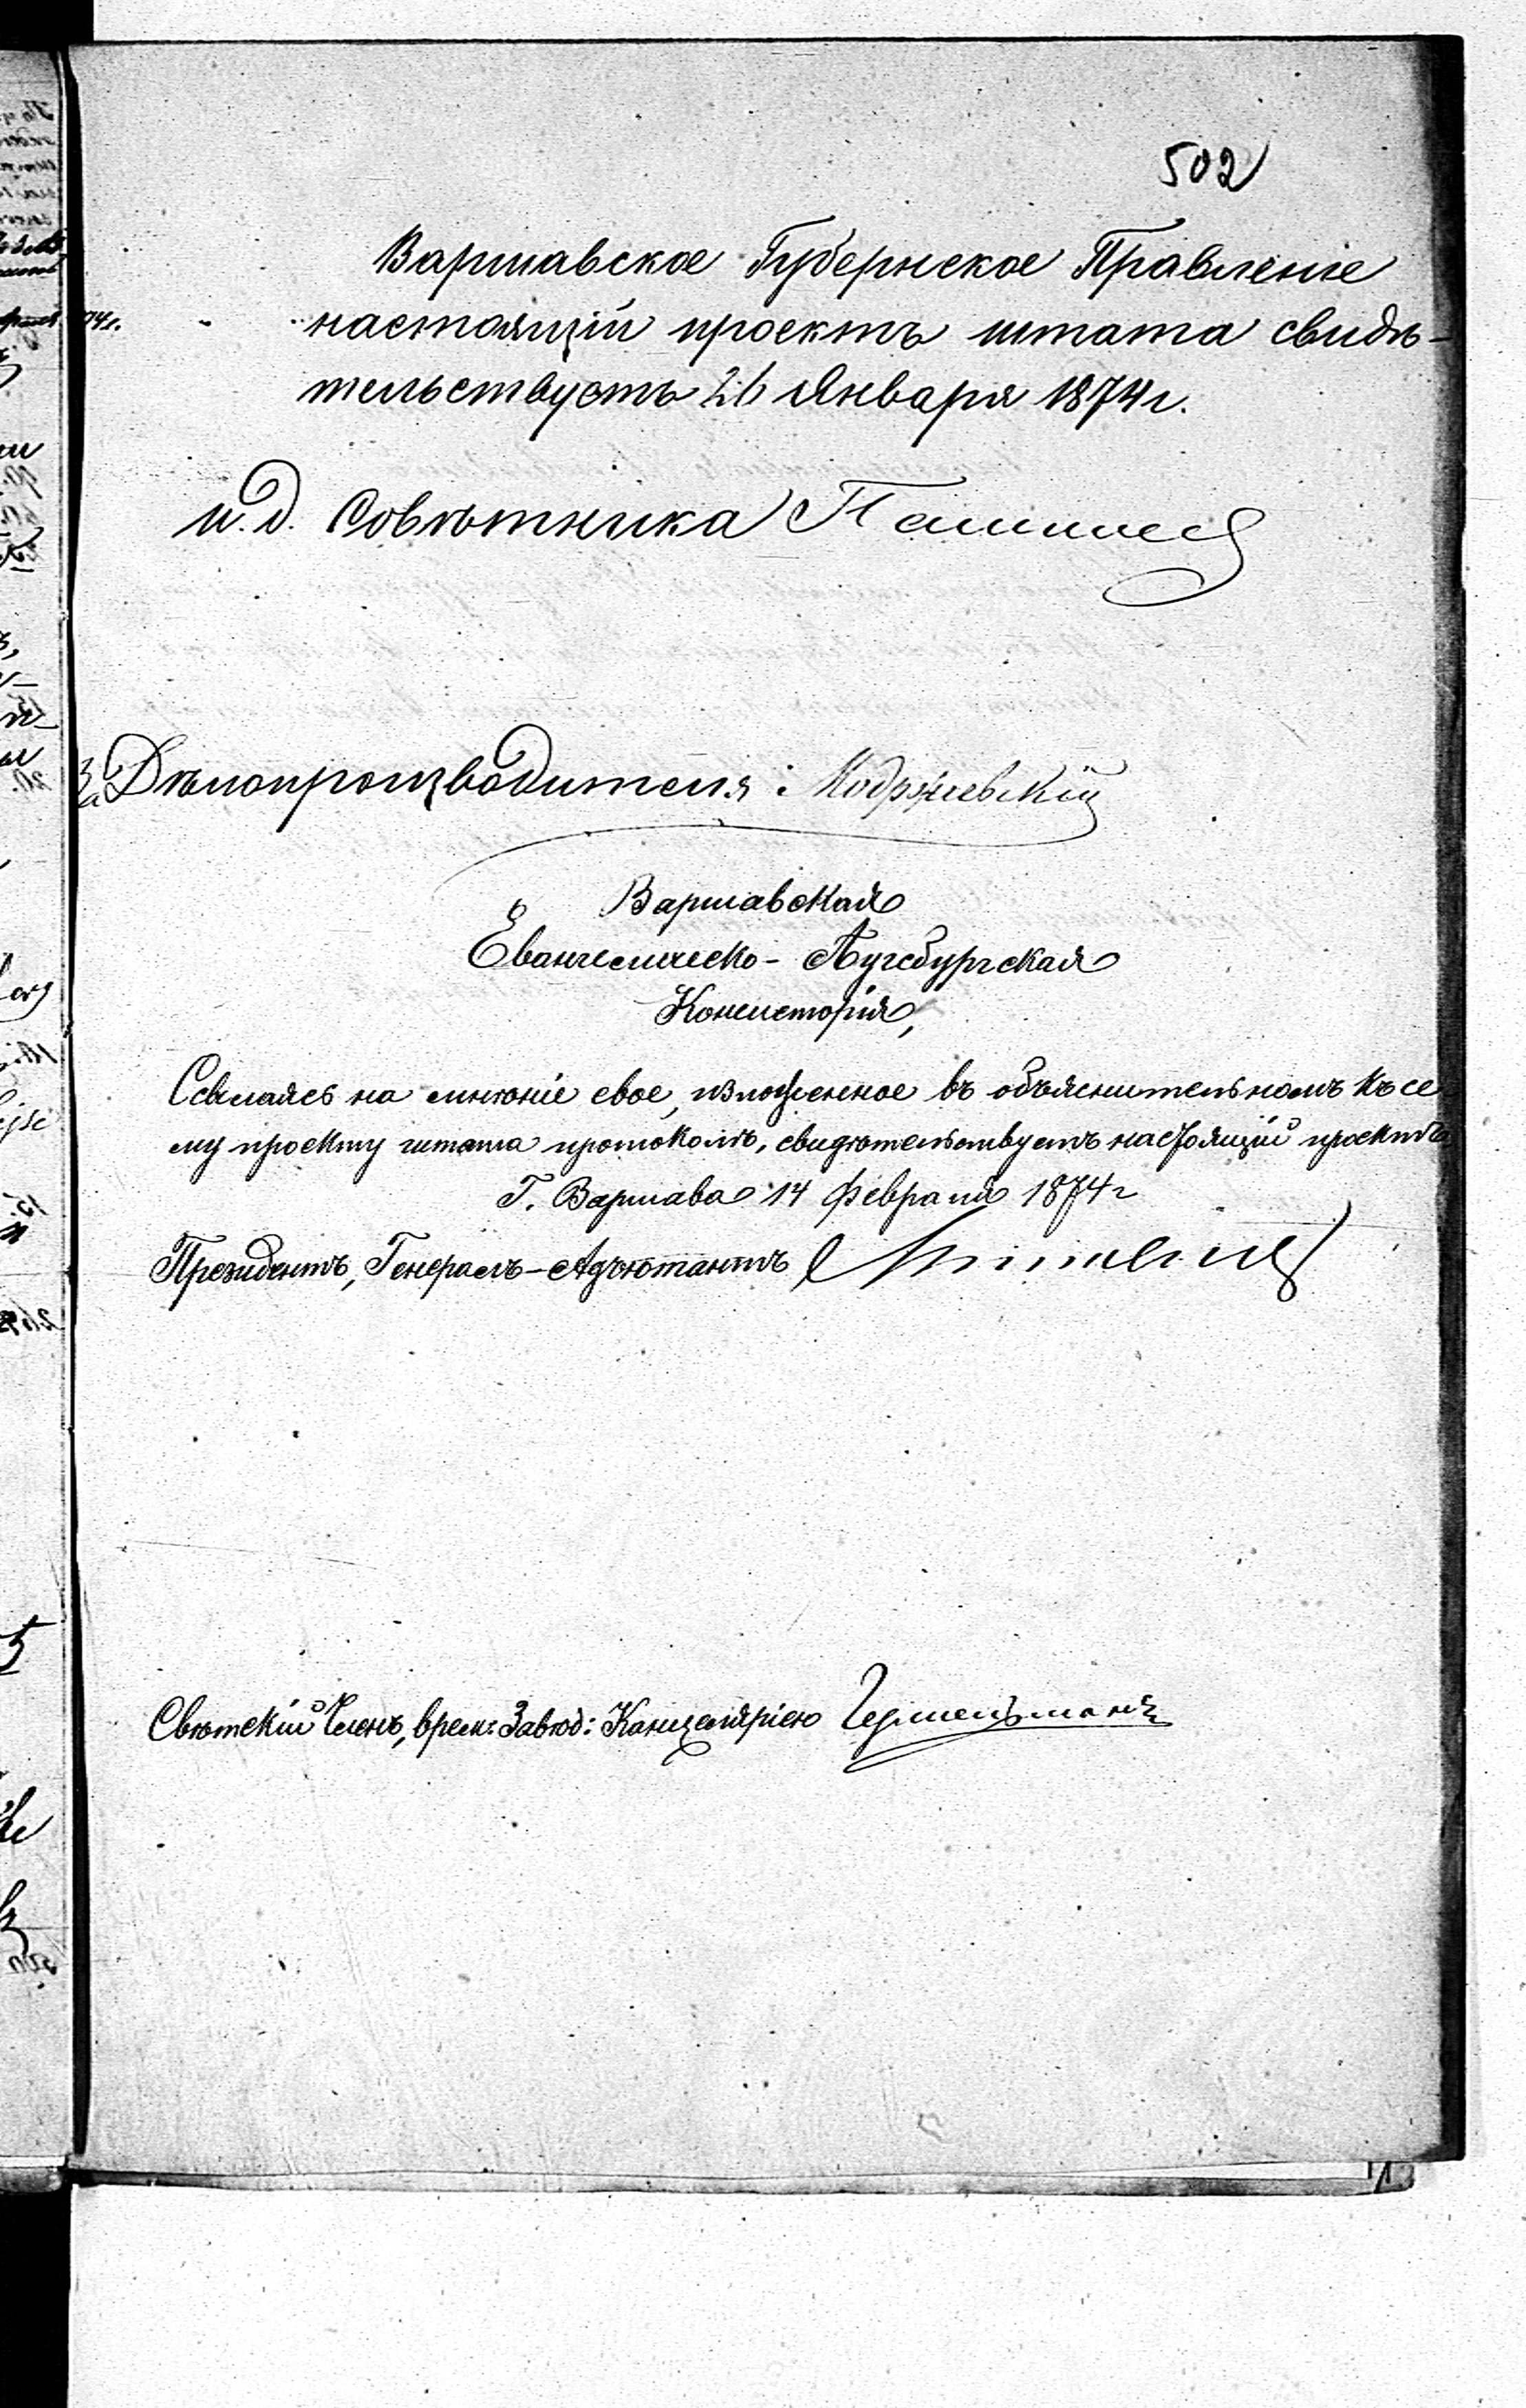 502
Варшавское Губернское Правленіе
настоящій проектъ штата свидѣ-
тельствуетъ 26 Января 1874 г.
и. д. Совѣтника
За Дѣлопроизводителя: Модржевскій
Варшавская
Евангелическо-Аугсбургская
Консисторія,
Ссылаясь на мнѣніе свое, изложенное въ объяснительномъ къ се
му проекту штата протоколѣ, свидѣтельствуетъ настоящій проектъ
Г. Варшава 14 Февраля 1874 г
Президентъ, Генералъ-Адъютантъ
Свѣтскій Членъ, врем: Завѣд: Канцеляріею